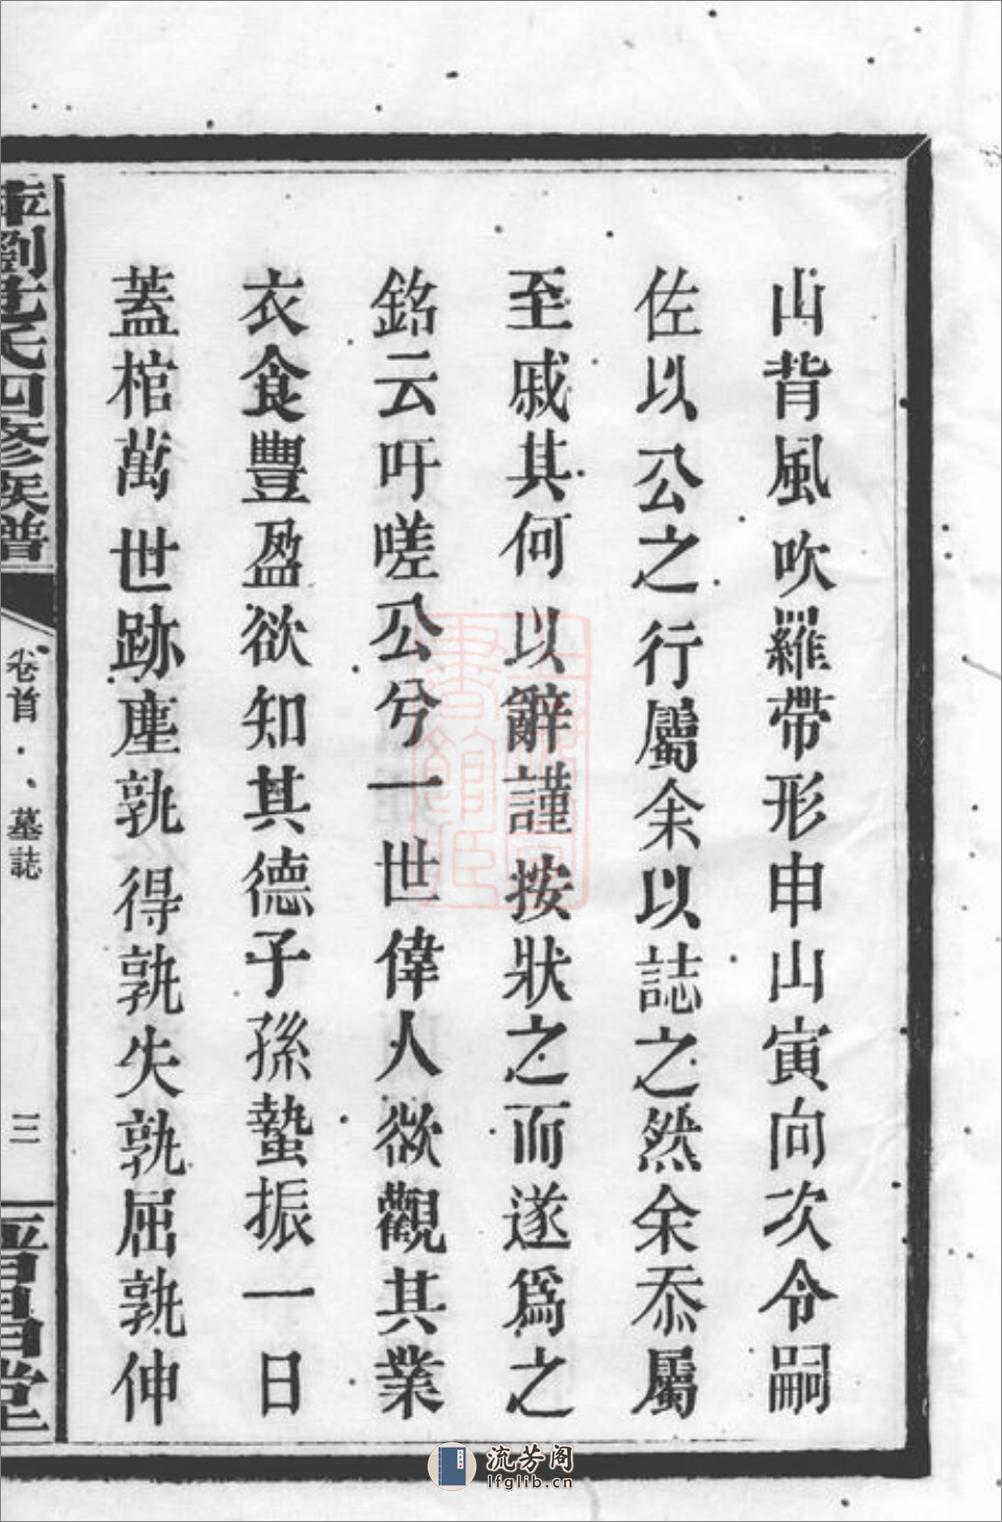 山背風吹羅帶形申山寅向次令嗣
佐以公之行屬余以誌之然余忝屬
至戚其何以辭謹按狀之而遂爲之
銘云吁嗟公兮一世偉人欲觀其業
衣食豐盈欲知其德子孫蟄振一日
蓋棺萬世跡塵孰得孰失孰屈孰伸
劉氏四修族譜
卷首
墓誌
三
堂
流芳阁
lfglib.cn